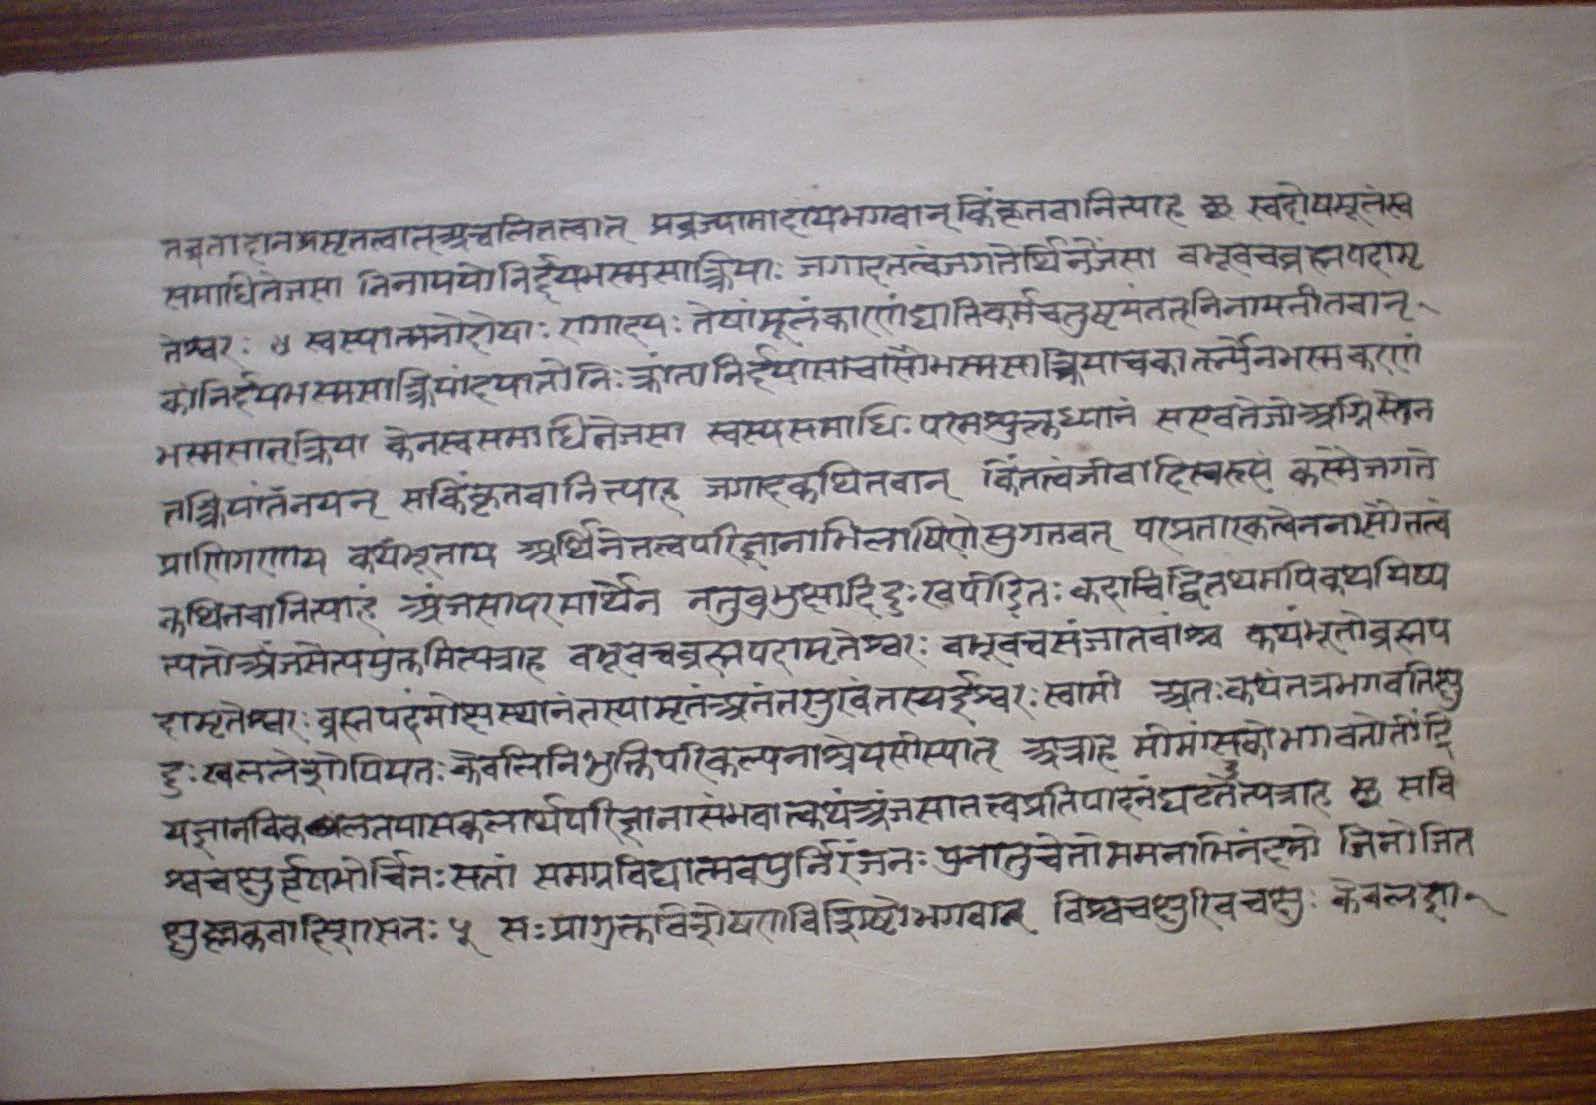 तव्रताद्यनप्रसृतत्वात्अचलितत्वात् प्रव्रज्यामादायभगवान् किंकृतवानित्याह छ स्वदोषमूलंस्व
समाधितेजसा निनाययोनिर्द्दयभस्मसात्क्रियाः जगादतत्वंजगतेर्थिनेंजसा वभूवचव्रह्मपदामृ
तेश्वरः ४ स्वस्यात्मनोदोषाः रागादयः तेषांमूलंकारणंघातिकर्मचतुष्टयंतत्निनायनीतवान्
कांनिर्द्दयभस्मसात्क्रियांदयातोनिःक्रांतानिर्द्दयासाचासौभस्मसात्क्रियाचकार्त्स्न्येनभस्मकरणं
भस्मसात्क्रिया केनस्वसमाधितेजसा स्वस्यसमाधिः परमशुक्लध्यानं सएवतेजोअग्निस्तेन
तत्क्रियांतंनयन् सकिंकृतवानित्याह जगादकथितवान् किंतत्वंजीवादिस्वरूपं कस्मैजगते
प्राणिगणाय कथंभूताय अर्थिनेतत्वपरिज्ञानाभिलाषिणेसुगतवत् परप्रतारकत्वेननासौतत्वं
कथितवानित्याह अंजसापरमार्थेन नतुवुभुक्षादिदुःखपीडितः कदाचिद्वितथमपिकथयिष्य
त्यतोअंजसेत्ययुक्तमित्यत्राह वभूवचव्रह्मपदामृतेश्वरः वभूवचसंजातवांश्च कथंभूतोव्रह्मप
दामृतेश्वरः व्रह्मपदंमोक्षस्थानंतस्यामृतंअनंतसुखंतस्यईश्वरः स्वामी अतः कथंतत्रभगवतिक्षु
दुःखललेशोपियतः केवलिनिभुक्तिपरिकल्पनाश्रेयसीस्यात् अत्राह मीमांसकोभगवतोतींद्रि
यज्ञानविकलतयासकलार्थपरिज्ञानासंभवात्कथंअंजसातत्त्वप्रतिपादनंघटतेत्यत्राह छ सवि
श्वचक्षुर्वृषभोर्चितःसतां समग्रविद्यात्मवपुर्निरंजनः पुनातुचेतोममनाभिनंदनो जिनोजित
क्षुल्लकवादिशासनः ५ सः प्रागुक्तविशेषणविशिष्टोभगवान् विश्वचक्षुरिवचक्षुः केवलज्ञा